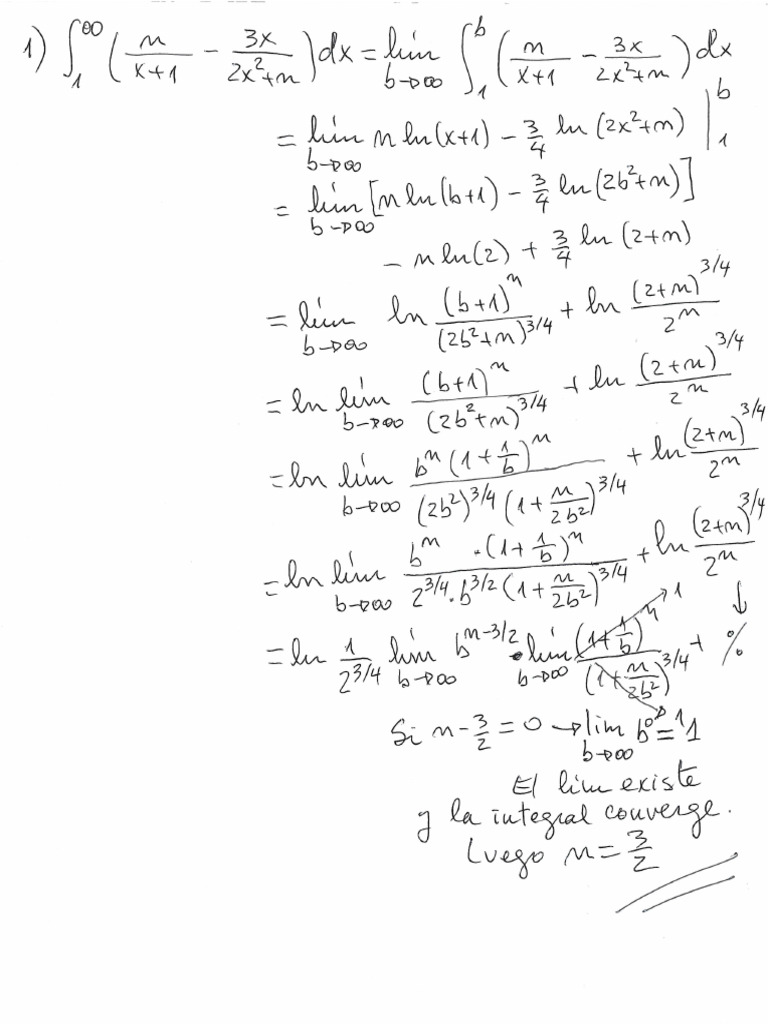 1) ∫₁^∞ (n/(x+1) − 3x/(2x²+n)) dx = lím_{b→∞} ∫₁^b (n/(x+1) − 3x/(2x²+n)) dx
= lím_{b→∞} n ln(x+1) − 3/4 ln(2x²+n) |₁^b
= lím_{b→∞} [n ln(b+1) − 3/4 ln(2b²+n)]
− n ln(2) + 3/4 ln(2+n)
= lím_{b→∞} ln (b+1)^n/(2b²+n)^{3/4} + ln (2+n)^{3/4}/2^n
= ln lím_{b→∞} (b+1)^n/(2b²+n)^{3/4} + ln (2+n)^{3/4}/2^n
= ln lím_{b→∞} b^n(1+1/b)^n/((2b²)^{3/4}(1+n/2b²)^{3/4}) + ln (2+n)^{3/4}/2^n
= ln lím_{b→∞} b^n·(1+1/b)^n/(2^{3/4}·b^{3/2}(1+n/2b²)^{3/4}) + ln (2+n)^{3/4}/2^n
= ln 1/2^{3/4} lím_{b→∞} b^{n−3/2} · lím_{b→∞} (1+1/b)^n/(1+n/2b²)^{3/4} + % → 1 → 1 ↓
Si n − 3/2 = 0 → lim_{b→∞} b⁰ = 1
El lim existe
y la integral converge.
Luego n = 3/2